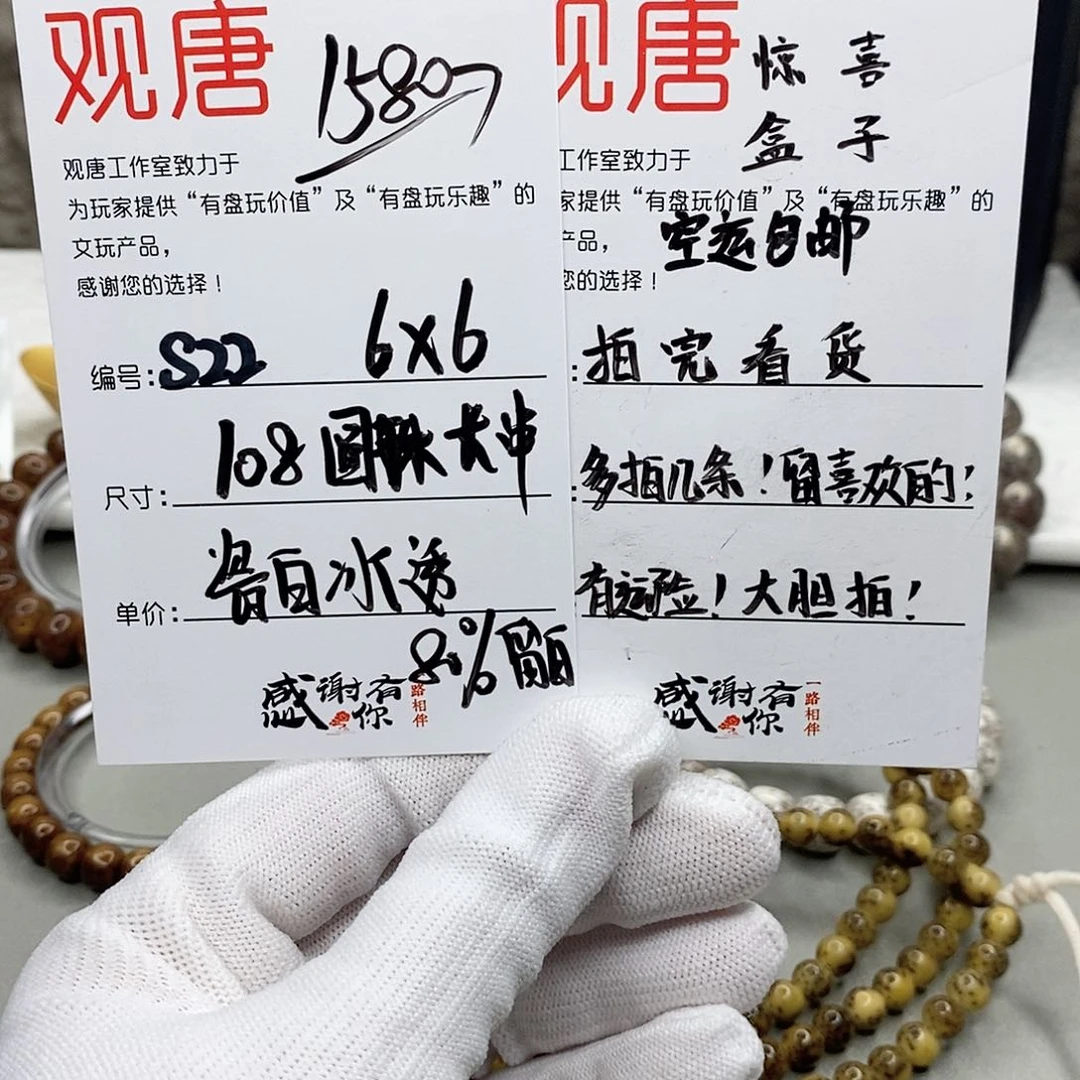 观唐
1580
观唐工作室致力于
为玩家提供“有盘玩价值”及“有盘玩乐趣”的
文玩产品，
感谢您的选择！
编号：S22 6x6
尺寸：108圆珠大串
单价：瓷白冰透
80%留白
感谢有你
一路相伴
观唐
惊喜
盒子
工作室致力于
家提供“有盘玩价值”及“有盘玩乐趣”的
产品，
空运包邮
您的选择！
：拍完看货
：多拍几条！留喜欢的！
有运险！大胆拍！
感谢有你
一路相伴